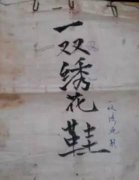 一双绣花鞋